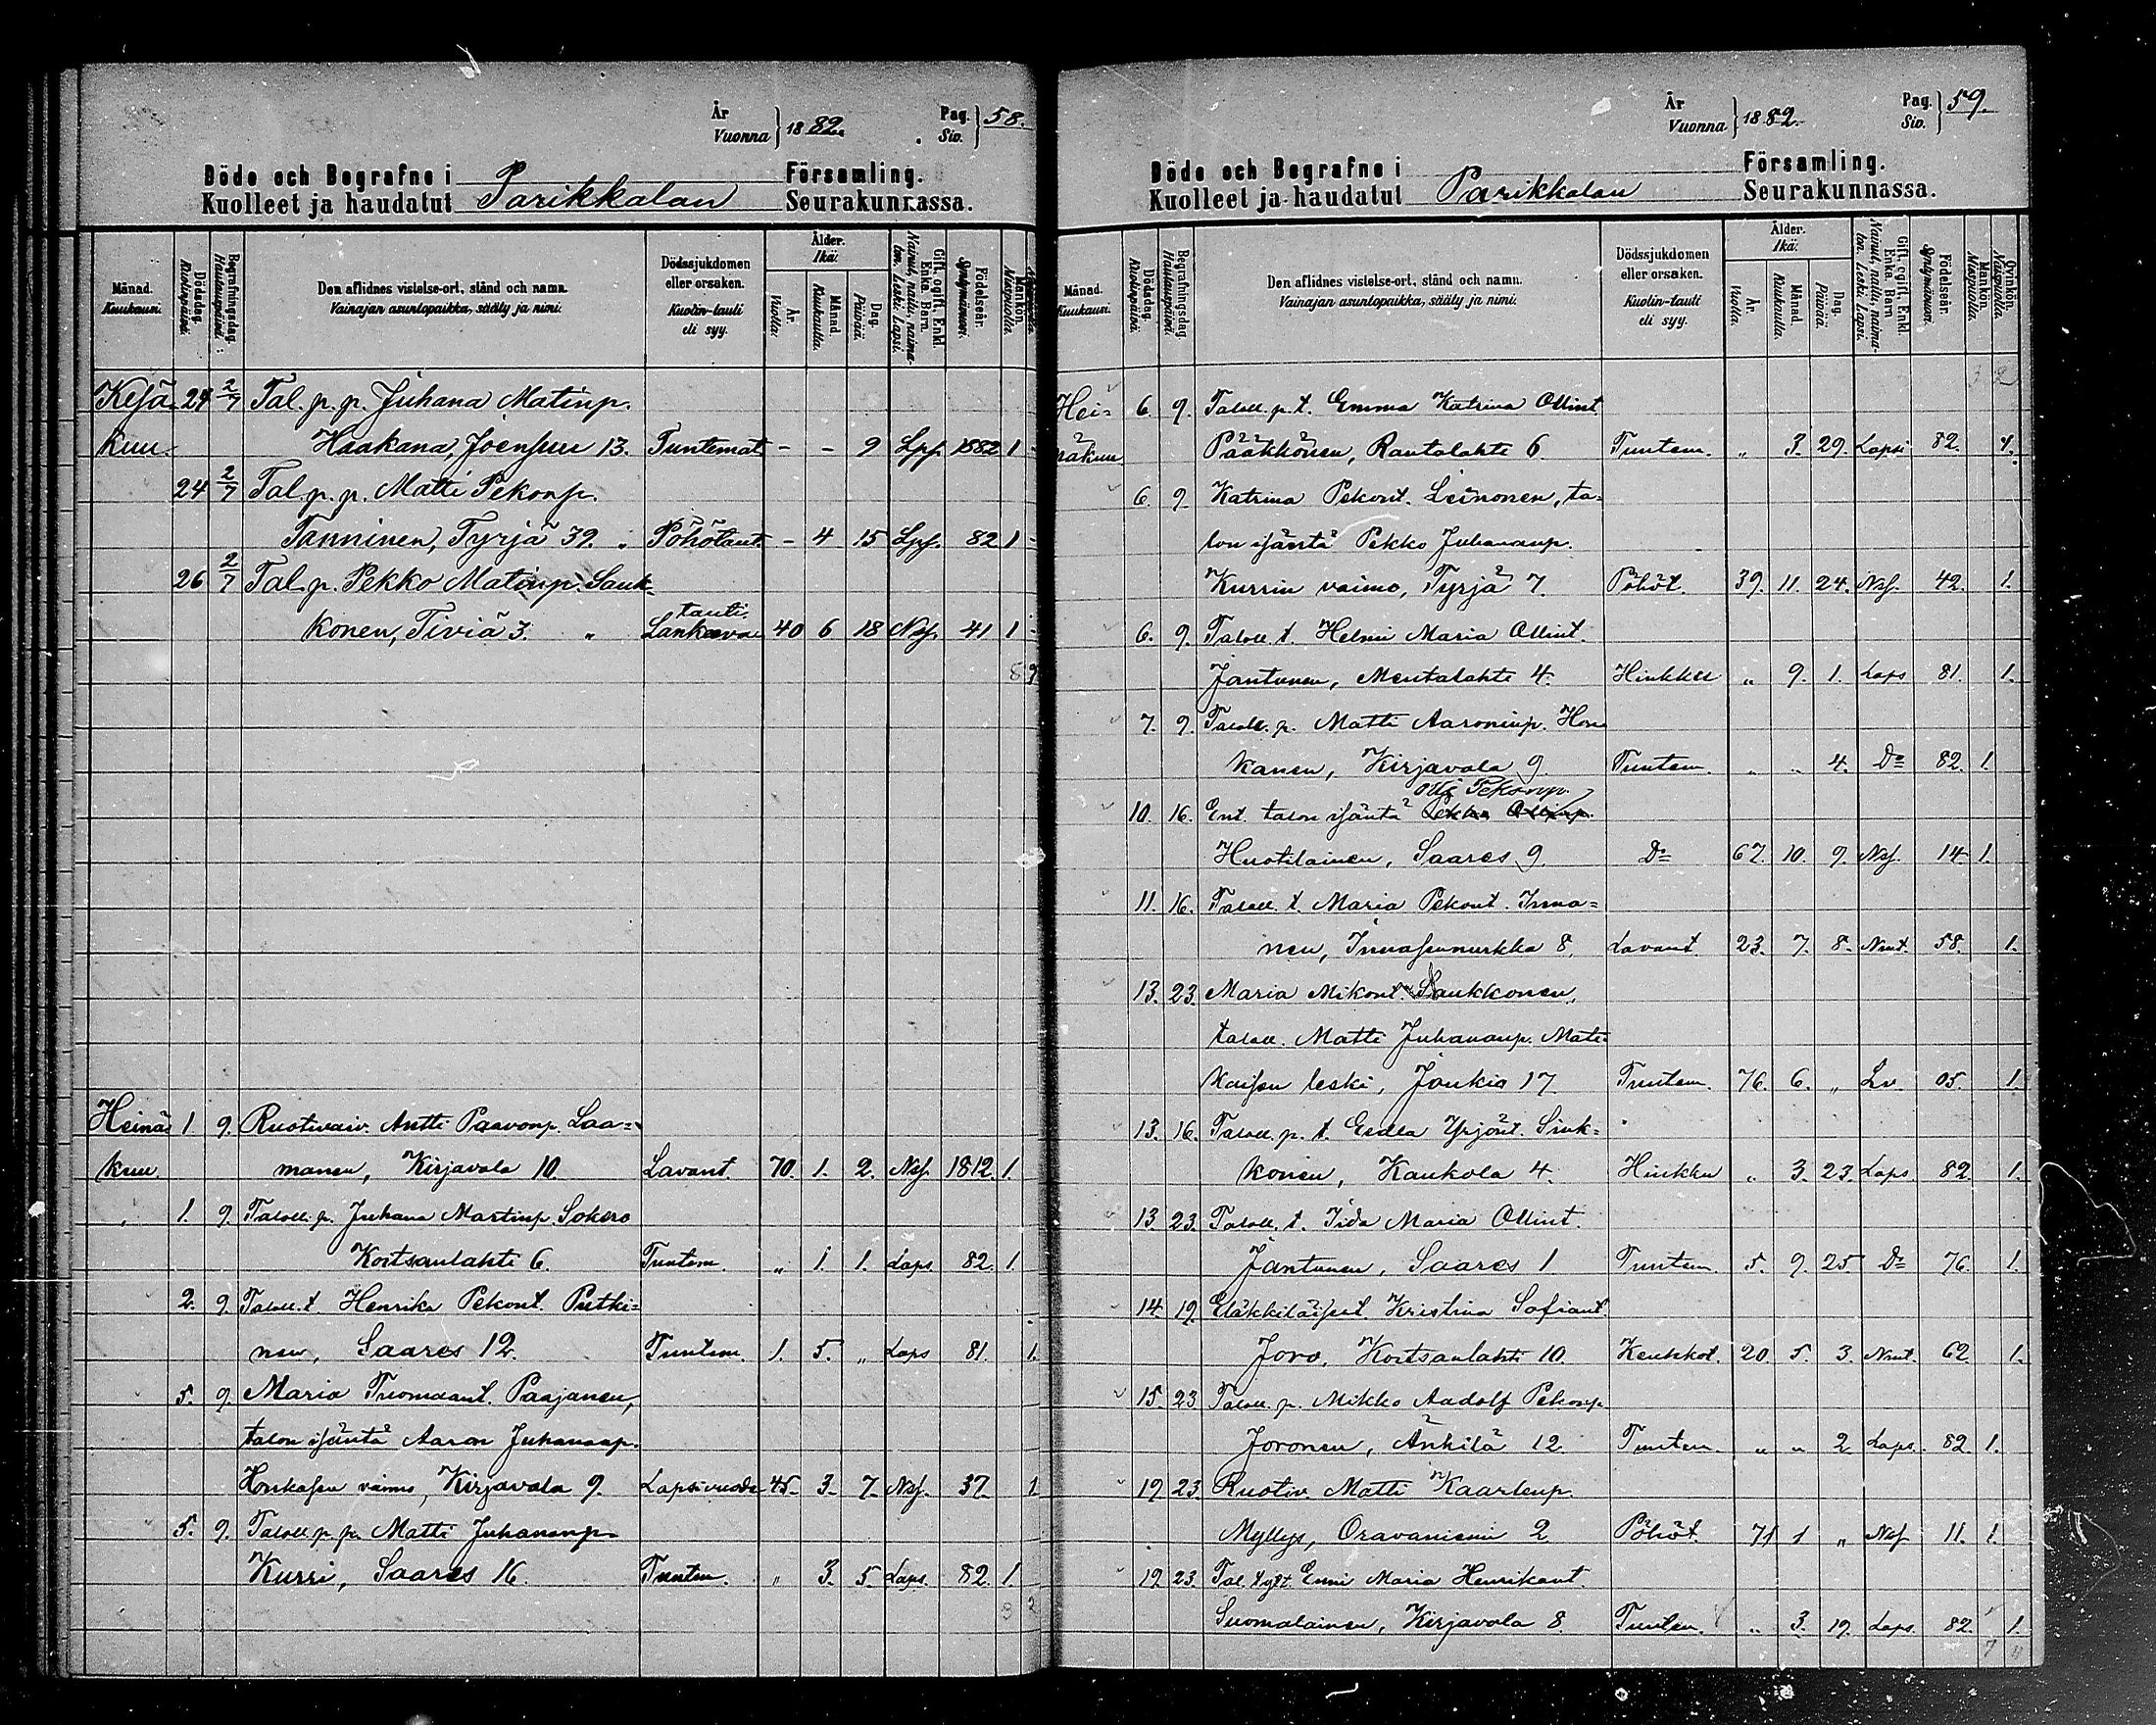 År
Vuonna } 1882. Pag. Siv. } 58.
Döde och Begrafne i Församling.
Kuolleet ja haudatut Parikkalan Seurakunnassa.
Månad. Kuukausi. Dödsdag. Kuolinpäivä. Begrafningsdag. Hautauspäivä. Den aflidnes vistelse-ort, stånd och namn. Vainajan asuntopaikka, sääty ja nimi. Dödssjukdomen eller orsaken. Kuolin-tauti eli syy. Ålder. Ikä. År. Vuotta. Månad. Kuukautta. Dag. Päivää. Gift, ogift, Enkl. Enka, Barn. Nainut, nailu, naimaton, Leski, Lapsi. Födelseår. Syntymävuosi. Mankön. Miespuolia.
Kesä- 24 2/7 Tal. p. p. Juhana Matinp.
kuu Haakana, Joensuu 13. Tuntemat. - - 9 Lps. 1882 1
24 2/7 Tal. p. p. Matti Pekonp.
Tanninen, Tyrjä 39. Pöhötaut. - 4 15 Lps. 82 1
26 2/7 Tal. p. Pekko Matinp. Sauk-
konen, Tiviä 3. " Lankeava tauti 40 6 18 Nsf. 41 1
8 9
Heinä- 1. 9. Ruotivaiv. Antti Paavonp. Laa-
kuu. manen, Kirjavala 10. Lavant. 70. 1. 2. Nsf. 1812. 1.
1. 9. Taloll. p. Juhana Martinp. Sokero
Koitsanlahti 6. Tuntem. " 1. 1. Laps 82. 1.
2. 9. Taloll. t. Henrika Pekont. Putki=
nen, Saares 12. Tuntem. 1. 5. " Laps 81. 1.
5. 9. Maria Tuomaant. Paajanen,
talon isäntä Aaron Juhananp.
Honkasen vaimo, Kirjavala 9. Lapsivuode 45. 3. 7. Nsf. 37. 1
5. 9. Taloll. p. p. Matti Juhananp.
Kurri, Saares 16. Tuntem. " 3. 5. Laps. 82. 1.
8 2
År
Vuonna } 1882. Pag. Siv. } 59.
Döde och Begrafne i Församling.
Kuolleet ja haudatut Parikkalan Seurakunnassa.
Månad. Kuukausi. Dödsdag. Kuolinpäivä. Begrafningsdag. Hautauspäivä. Den aflidnes vistelse-ort, stånd och namn. Vainajan asuntopaikka, sääty ja nimi. Dödssjukdomen eller orsaken. Kuolin-tauti eli syy. Ålder. Ikä. År. Vuotta. Månad. Kuukautta. Dag. Päivää. Gift, ogift, Enkl. Enka, Barn. Nainut, nailu, naimaton, Leski, Lapsi. Födelseår. Syntymävuosi. Mankön. Miespuolia. Qvinkön. Naispuolia.
3 2
Hei= 6. 9. Taloll. p. t. Emma Katrina Ollint
näkuu Pääkkönen, Rautalahti 6 Tuntem. " 3. 29. Lapsi 82. 1.
6. 9. Katrina Pekont. Leinonen, ta=
lon isäntä Pekko Juhananp.
Kurrin vaimo, Tyrjä 7. Pöhöt. 39. 11. 24. Nsf. 42. 1.
6. 9. Taloll. t. Helmi Maria Ollint.
Jantunen, Mentalahti 4. Hinkku " 9. 1. Laps 81. 1.
7. 9. Taloll. p. Matti Aaroninp. Hon-
kanen, Kirjavala 9. Tuntem. " " 4. Do 82. 1.
Olli Pekonp.
10. 16. Ent. talon isäntä Pekko Ollinp.
Huotilainen, Saares 9. Do 67. 10. 9. Nsf. 14. 1.
11. 16. Taloll. t. Maria Pekont. Inna=
nen, Innasennurkka 8. Lavant. 23. 7. 8. Nmt. 58. 1.
13. 23. Maria Mikont. Saukkonen,
taloll. Matti Juhananp. Mati=
kaisen leski, Joukio 17 Tuntem. 76. 6. " Lv 05. 1.
13. 16. Taloll. p. t. Eedla Yrjönt. Sink=
konen, Kaukola 4. Hinkku " 3. 23. Laps. 82. 1.
13. 23. Taloll. t. Iida Maria Ollint.
Jantunen, Saares 1 Tuntem. 5. 9. 25. Do 76. 1.
14. 19. Eläkkiläisent. Kristina Sofiant.
Joro, Koitsanlahti 10. Keuhkot. 20. 5. 3. Nmt. 62. 1.
15. 23 Taloll. p. Mikko Aadolf Pekonp.
Joronen, Änkilä 12 Tuntem. " " 2 Laps. 82. 1.
19 23. Ruotiv. Matti Kaarlenp.
Myllys, Oravaniemi 2 Pöhöt. 71 1 " Nsf 11. 1.
19. 23. Tal. tyt. Enni Maria Henrikant.
Suomalainen, Kirjavala 8. Tuntem. " 3. 19. Laps. 82. 1.
7 11